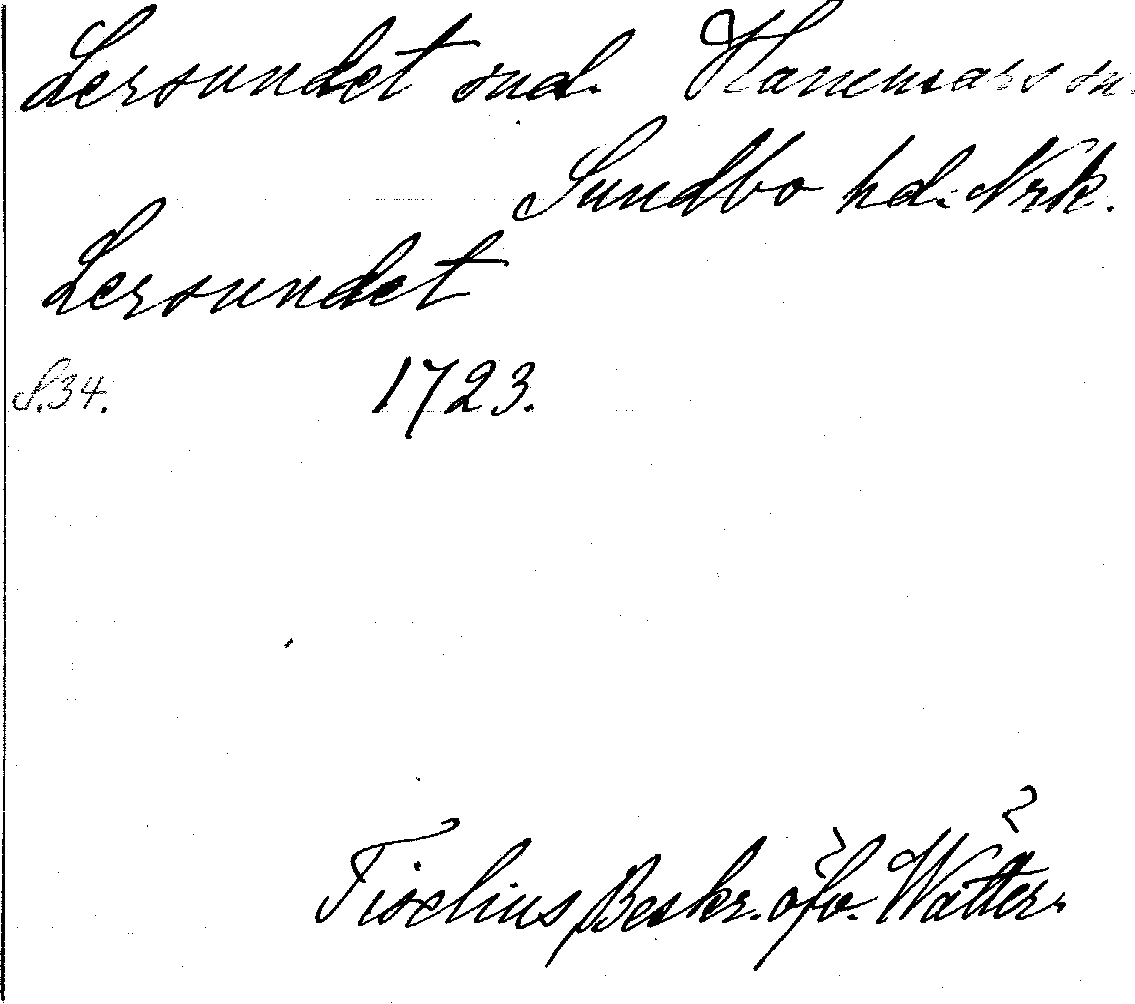 Lersundet sud. Hammars sn.
Sundbo hd. Nrk.
Lersundet
S.34. 1723.
Tiselius Beskr. öfv. Wätter.